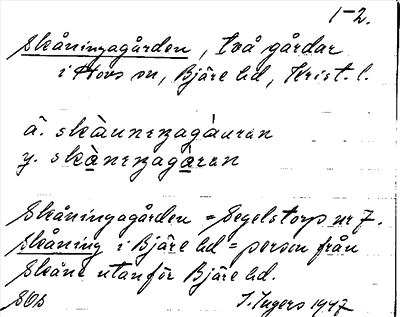 1-2.
Skåningagården, två gårdar
i Hovs sn, Bjäre hd, Krist. l.
ä. skàunɪngagáuran
y. skànɪngagáran
Skåningagården = Segelstorp nr 7.
Skåning i Bjäre hd = person från
Skåne utanför Bjäre hd.
SOB I. Ingers 1947